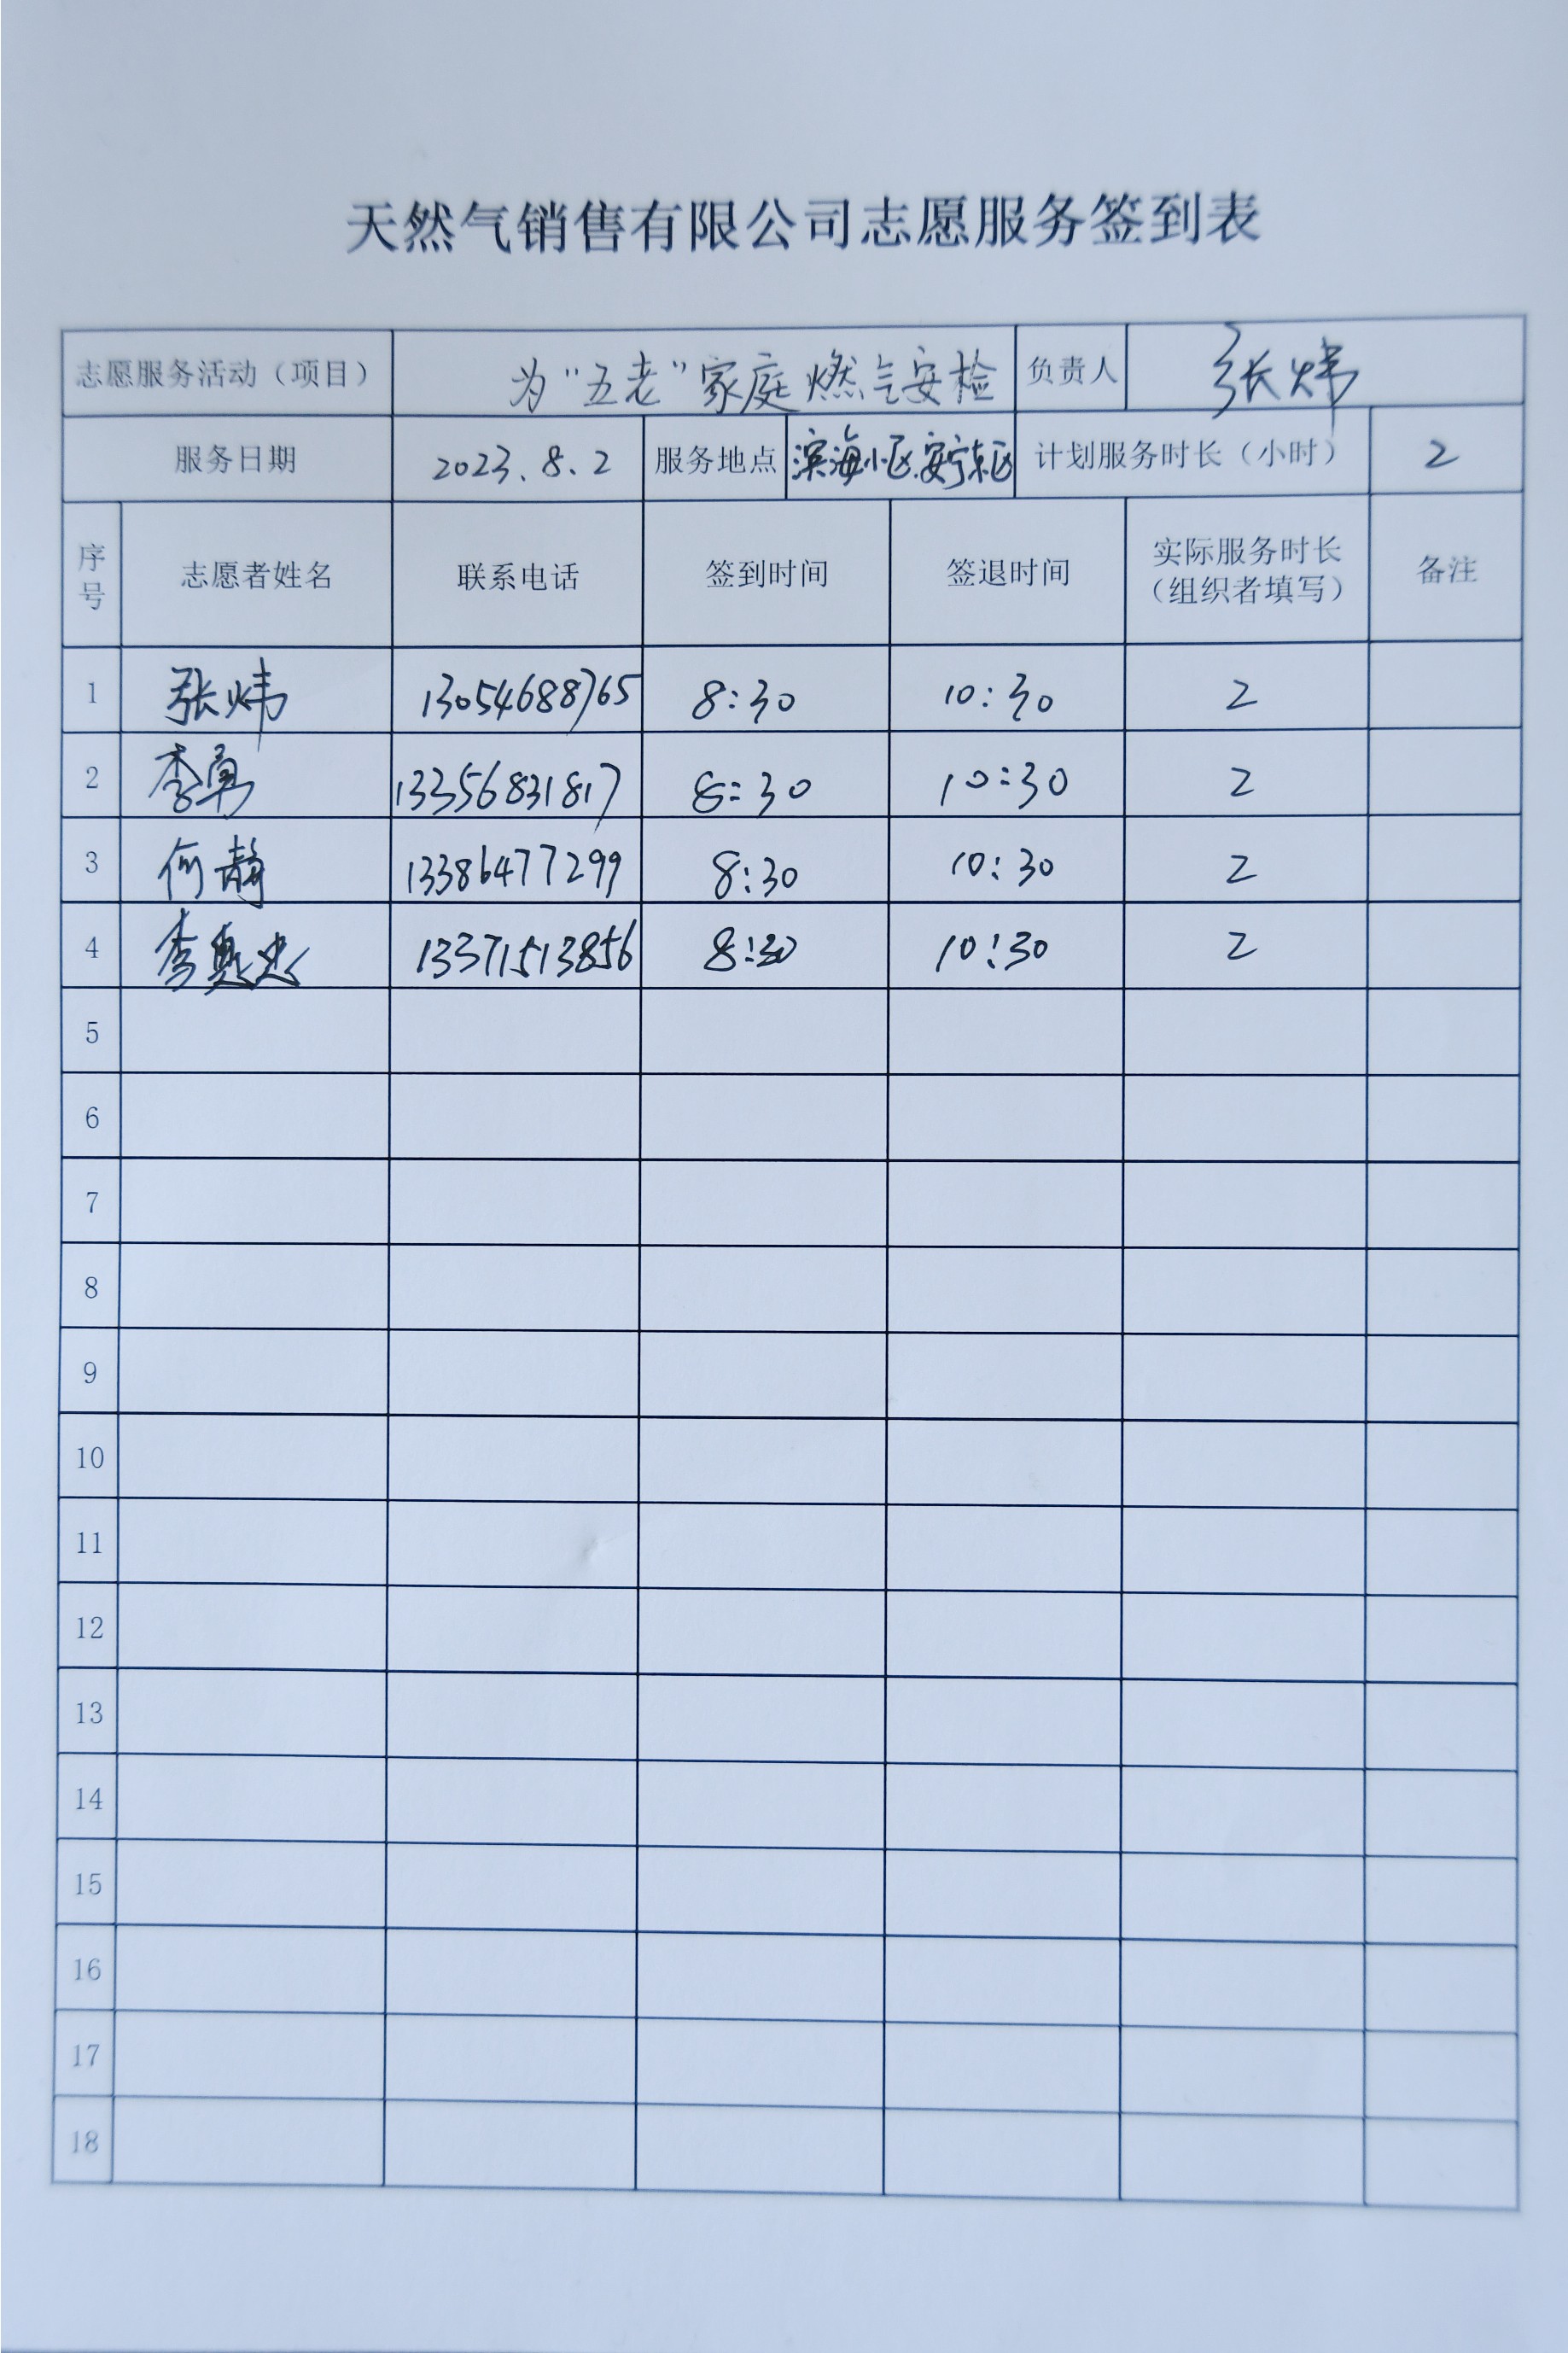 天然气销售有限公司志愿服务签到表
志愿服务活动（项目） 为“五老”家庭燃气安检 负责人 张炜
服务日期 2023.8.2 服务地点 滨海小区.安宁东区 计划服务时长（小时） 2
序号 志愿者姓名 联系电话 签到时间 签退时间 实际服务时长（组织者填写） 备注
1 张炜 13054688765 8:30 10:30 2
2 李勇 13356831817 8:30 10:30 2
3 何静 13386477299 8:30 10:30 2
4 李 忠 13371513856 8:30 10:30 2
5
6
7
8
9
10
11
12
13
14
15
16
17
18